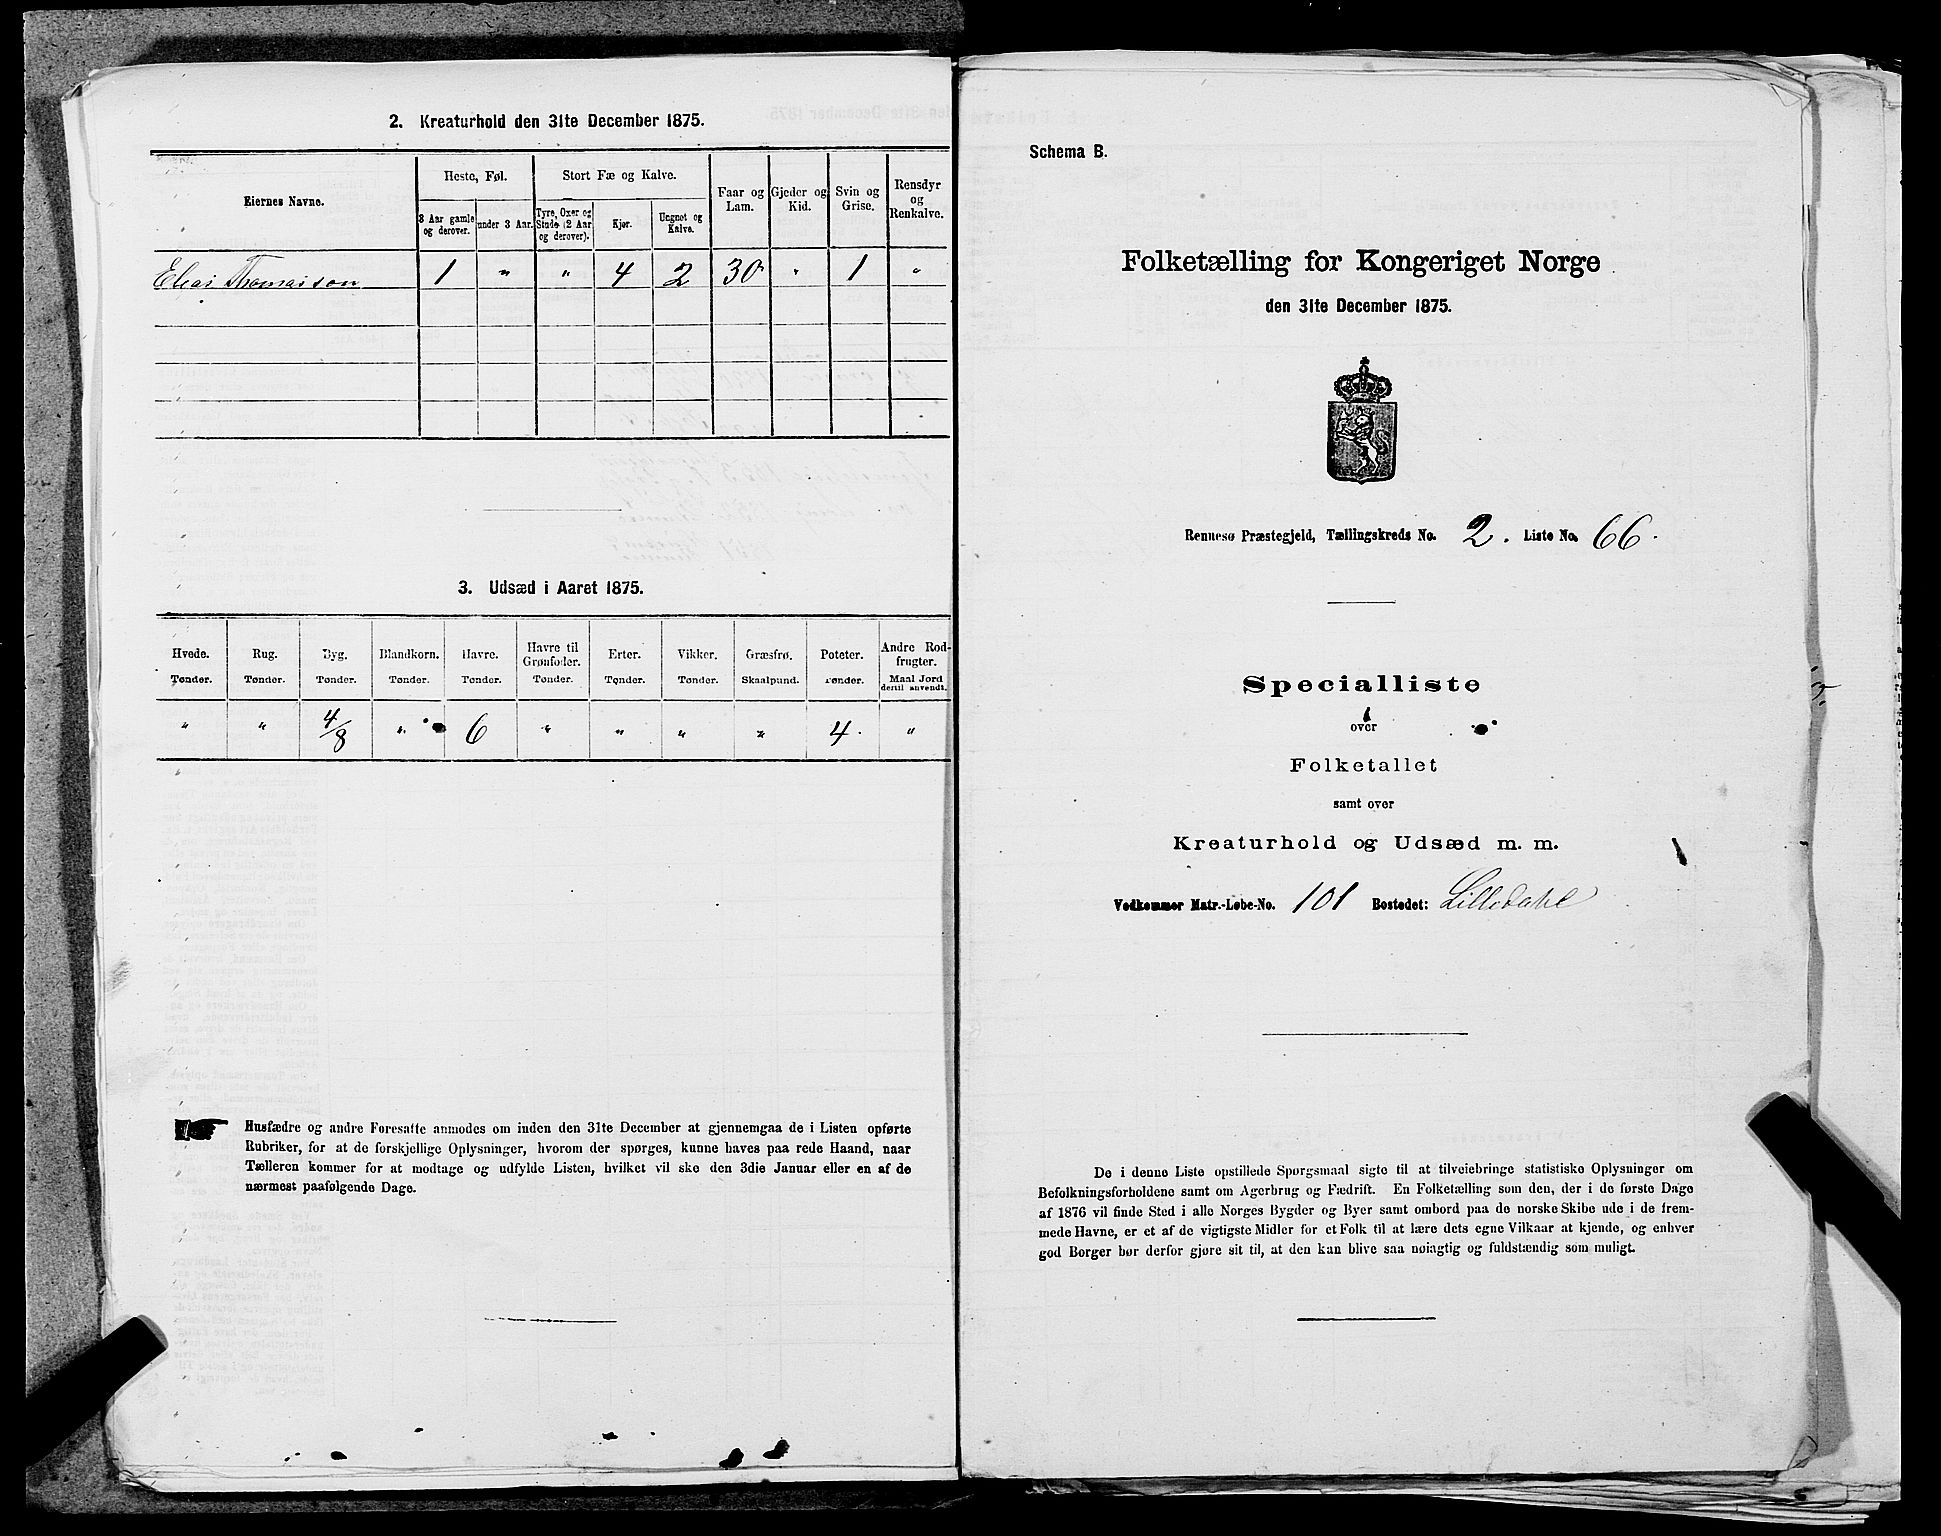 2. Kreaturhold den 31te December 1875.
Eiernes Navne.
Heste, Føl.
Stort Fæ og Kalve.
Faar og Lam.
Gjeder og Kid.
Svin og Grise.
Rensdyr og Renkalve.
3 Aar gamle og derover.
under 3 Aar.
Tyre, Oxer og Stude (2 Aar og derover).
Kjør.
Ungnøt og Kalve.
Elias Thomasson 1 " " 4 2 30 " 1 "
3. Udsæd i Aaret 1875.
Hvede. Rug. Byg. Blandkorn. Havre. Havre til Grønfoder. Erter. Vikker. Græsfrø. Poteter. Andre Rodfrugter.
Tønder. Tønder. Tønder. Tønder. Tønder. Tønder. Tønder. Tønder. Skaalpund. Tønder. Maal Jord dertil anvendt.
" " 4/8 " 6 " " " " 4. "
Husfædre og andre Foresatte anmodes om inden den 31te December at gjennemgaa de i Listen opførte
Rubriker, for at de forskjellige Oplysninger, hvorom der spørges, kunne haves paa rede Haand, naar
Tælleren kommer for at modtage og udfylde Listen, hvilket vil ske den 3die Januar eller en af de
nærmest paafølgende Dage.
Schema B.
Folketælling for Kongeriget Norge
den 31te December 1875.
Rennesø Præstegjeld, Tællingskreds No. 2. Liste No. 66.
Specialliste
over
Folketallet
samt over
Kreaturhold og Udsæd m. m.
Vedkommer Matr.-Løbe-No. 101 Bostedet: Lilledahl
De i denne Liste opstillede Spørgsmaal sigte til at tilveiebringe statistiske Oplysninger om
Befolkningsforholdene samt om Agerbrug og Fædrift. En Folketælling som den, der i de første Dage
af 1876 vil finde Sted i alle Norges Bygder og Byer samt ombord paa de norske Skibe ude i de frem-
mede Havne, er et af de vigtigste Midler for et Folk til at lære dets egne Vilkaar at kjende, og enhver
god Borger bør derfor gjøre sit til, at den kan blive saa nøiagtig og fuldstændig som muligt.